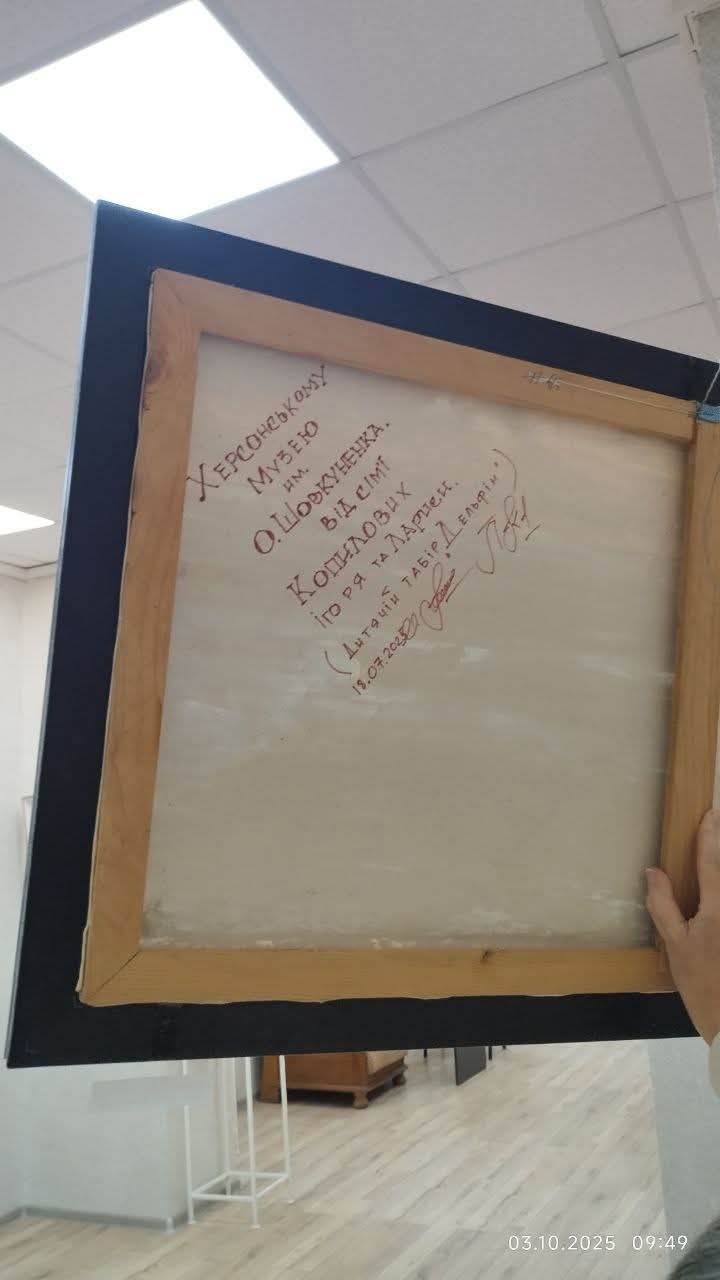 Херсонському
Музею
им.
О. Шовкуненка.
від сімї
Копилових
Ігоря та Лариси.
(Дитячій табір "Дельфін")
18.07.2025
03.10.2025 09:49